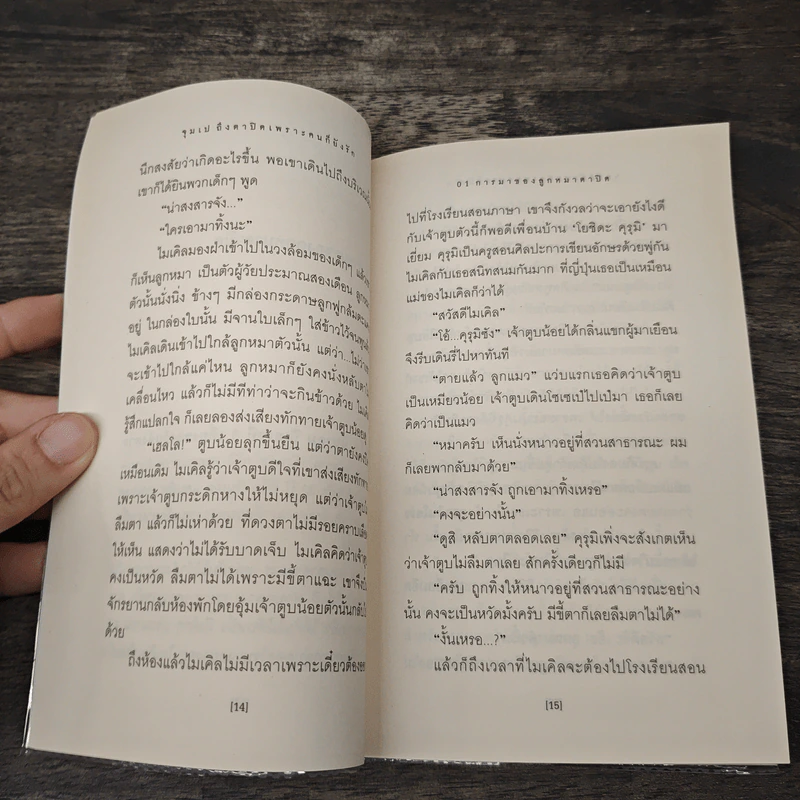 ชุมเป ถึงตาปิดเพราะคนก็ยังรัก
นึกสงสัยว่าเกิดอะไรขึ้น พอเขาเดินไปถึงบริเวณนั้น
เขาก็ได้ยินพวกเด็กๆ พูด
“น่าสงสารจัง...”
“ใครเอามาทิ้งนะ”
ไมเคิลมองฝ่าเข้าไปในวงล้อมของเด็กๆ
ก็เห็นลูกหมา เป็นตัวผู้วัยประมาณสองเดือน
ตัวนั้นนั่งนิ่ง ข้างๆ มีกล่องกระดาษลูกฟูกล้มตะแคง
อยู่ ในกล่องใบนั้น มีจานใบเล็กๆ ใส่ข้าวไว้จนพูน
ไมเคิลเดินเข้าไปใกล้ลูกหมาตัวนั้น แต่ว่า...ไม่ว่า
จะเข้าไปใกล้แค่ไหน ลูกหมาก็ยังคงนั่งหลับตา
เคลื่อนไหว แล้วก็ไม่มีทีท่าว่าจะกินข้าวด้วย
รู้สึกแปลกใจ ก็เลยลองส่งเสียงทักทายเจ้าตูบน้อยดู
“เฮลโล!” ตูบน้อยลุกขึ้นยืน แต่ว่าตายังคง
เหมือนเดิม ไมเคิลรู้ว่าเจ้าตูบดีใจที่เขาส่งเสียงทัก
เพราะเจ้าตูบกระดิกหางให้ไม่หยุด แต่ว่าเจ้าตูบ
ลืมตา แล้วก็ไม่เห่าด้วย ที่ดวงตาไม่มีรอยคราบเลือด
ให้เห็น แสดงว่าไม่ได้รับบาดเจ็บ ไมเคิลคิดว่าเจ้า
คงเป็นหวัด ลืมตาไม่ได้เพราะมีขี้ตาแฉะ เขาจึง
จักรยานกลับห้องพักโดยอุ้มเจ้าตูบน้อยตัวนั้นกลับ
ด้วย
ถึงห้องแล้วไมเคิลไม่มีเวลาเพราะเดี๋ยวต้อง
[14]
01 การมาของลูกหมาตาปิด
ไปที่โรงเรียนสอนภาษา เขาจึงกังวลว่าจะเอายังไงดี
กับเจ้าตูบตัวนี้ก็พอดีเพื่อนบ้าน ‘โยชิดะ คุรุมิ’ มา
เยี่ยม คุรุมิเป็นครูสอนศิลปะการเขียนอักษรด้วยพู่กัน
ไมเคิลกับเธอสนิทสนมกันมาก ที่ญี่ปุ่นเธอเป็นเหมือน
แม่ของไมเคิลก็ว่าได้
“สวัสดีไมเคิล”
“โอ้...คุรุมิซัง” เจ้าตูบน้อยได้กลิ่นแขกผู้มาเยือน
จึงรีบเดินรี่ไปหาทันที
“ตายแล้ว ลูกแมว” แว่บแรกเธอคิดว่าเจ้าตูบ
เป็นเหมียวน้อย เจ้าตูบเดินโซเซเป๋ไปเป๋มา เธอก็เลย
คิดว่าเป็นแมว
“หมาครับ เห็นนั่งหนาวอยู่ที่สวนสาธารณะ ผม
ก็เลยพากลับมาด้วย”
“น่าสงสารจัง ถูกเอามาทิ้งเหรอ”
“คงจะอย่างนั้น”
“ดูสิ หลับตาตลอดเลย” คุรุมิเพิ่งจะสังเกตเห็น
ว่าเจ้าตูบไม่ลืมตาเลย สักครั้งเดียวก็ไม่มี
“ครับ ถูกทิ้งให้หนาวอยู่ที่สวนสาธารณะอย่าง
นั้น คงจะเป็นหวัดมั้งครับ มีขี้ตาก็เลยลืมตาไม่ได้”
“งั้นเหรอ...?”
แล้วก็ถึงเวลาที่ไมเคิลจะต้องไปโรงเรียนสอน
[15]